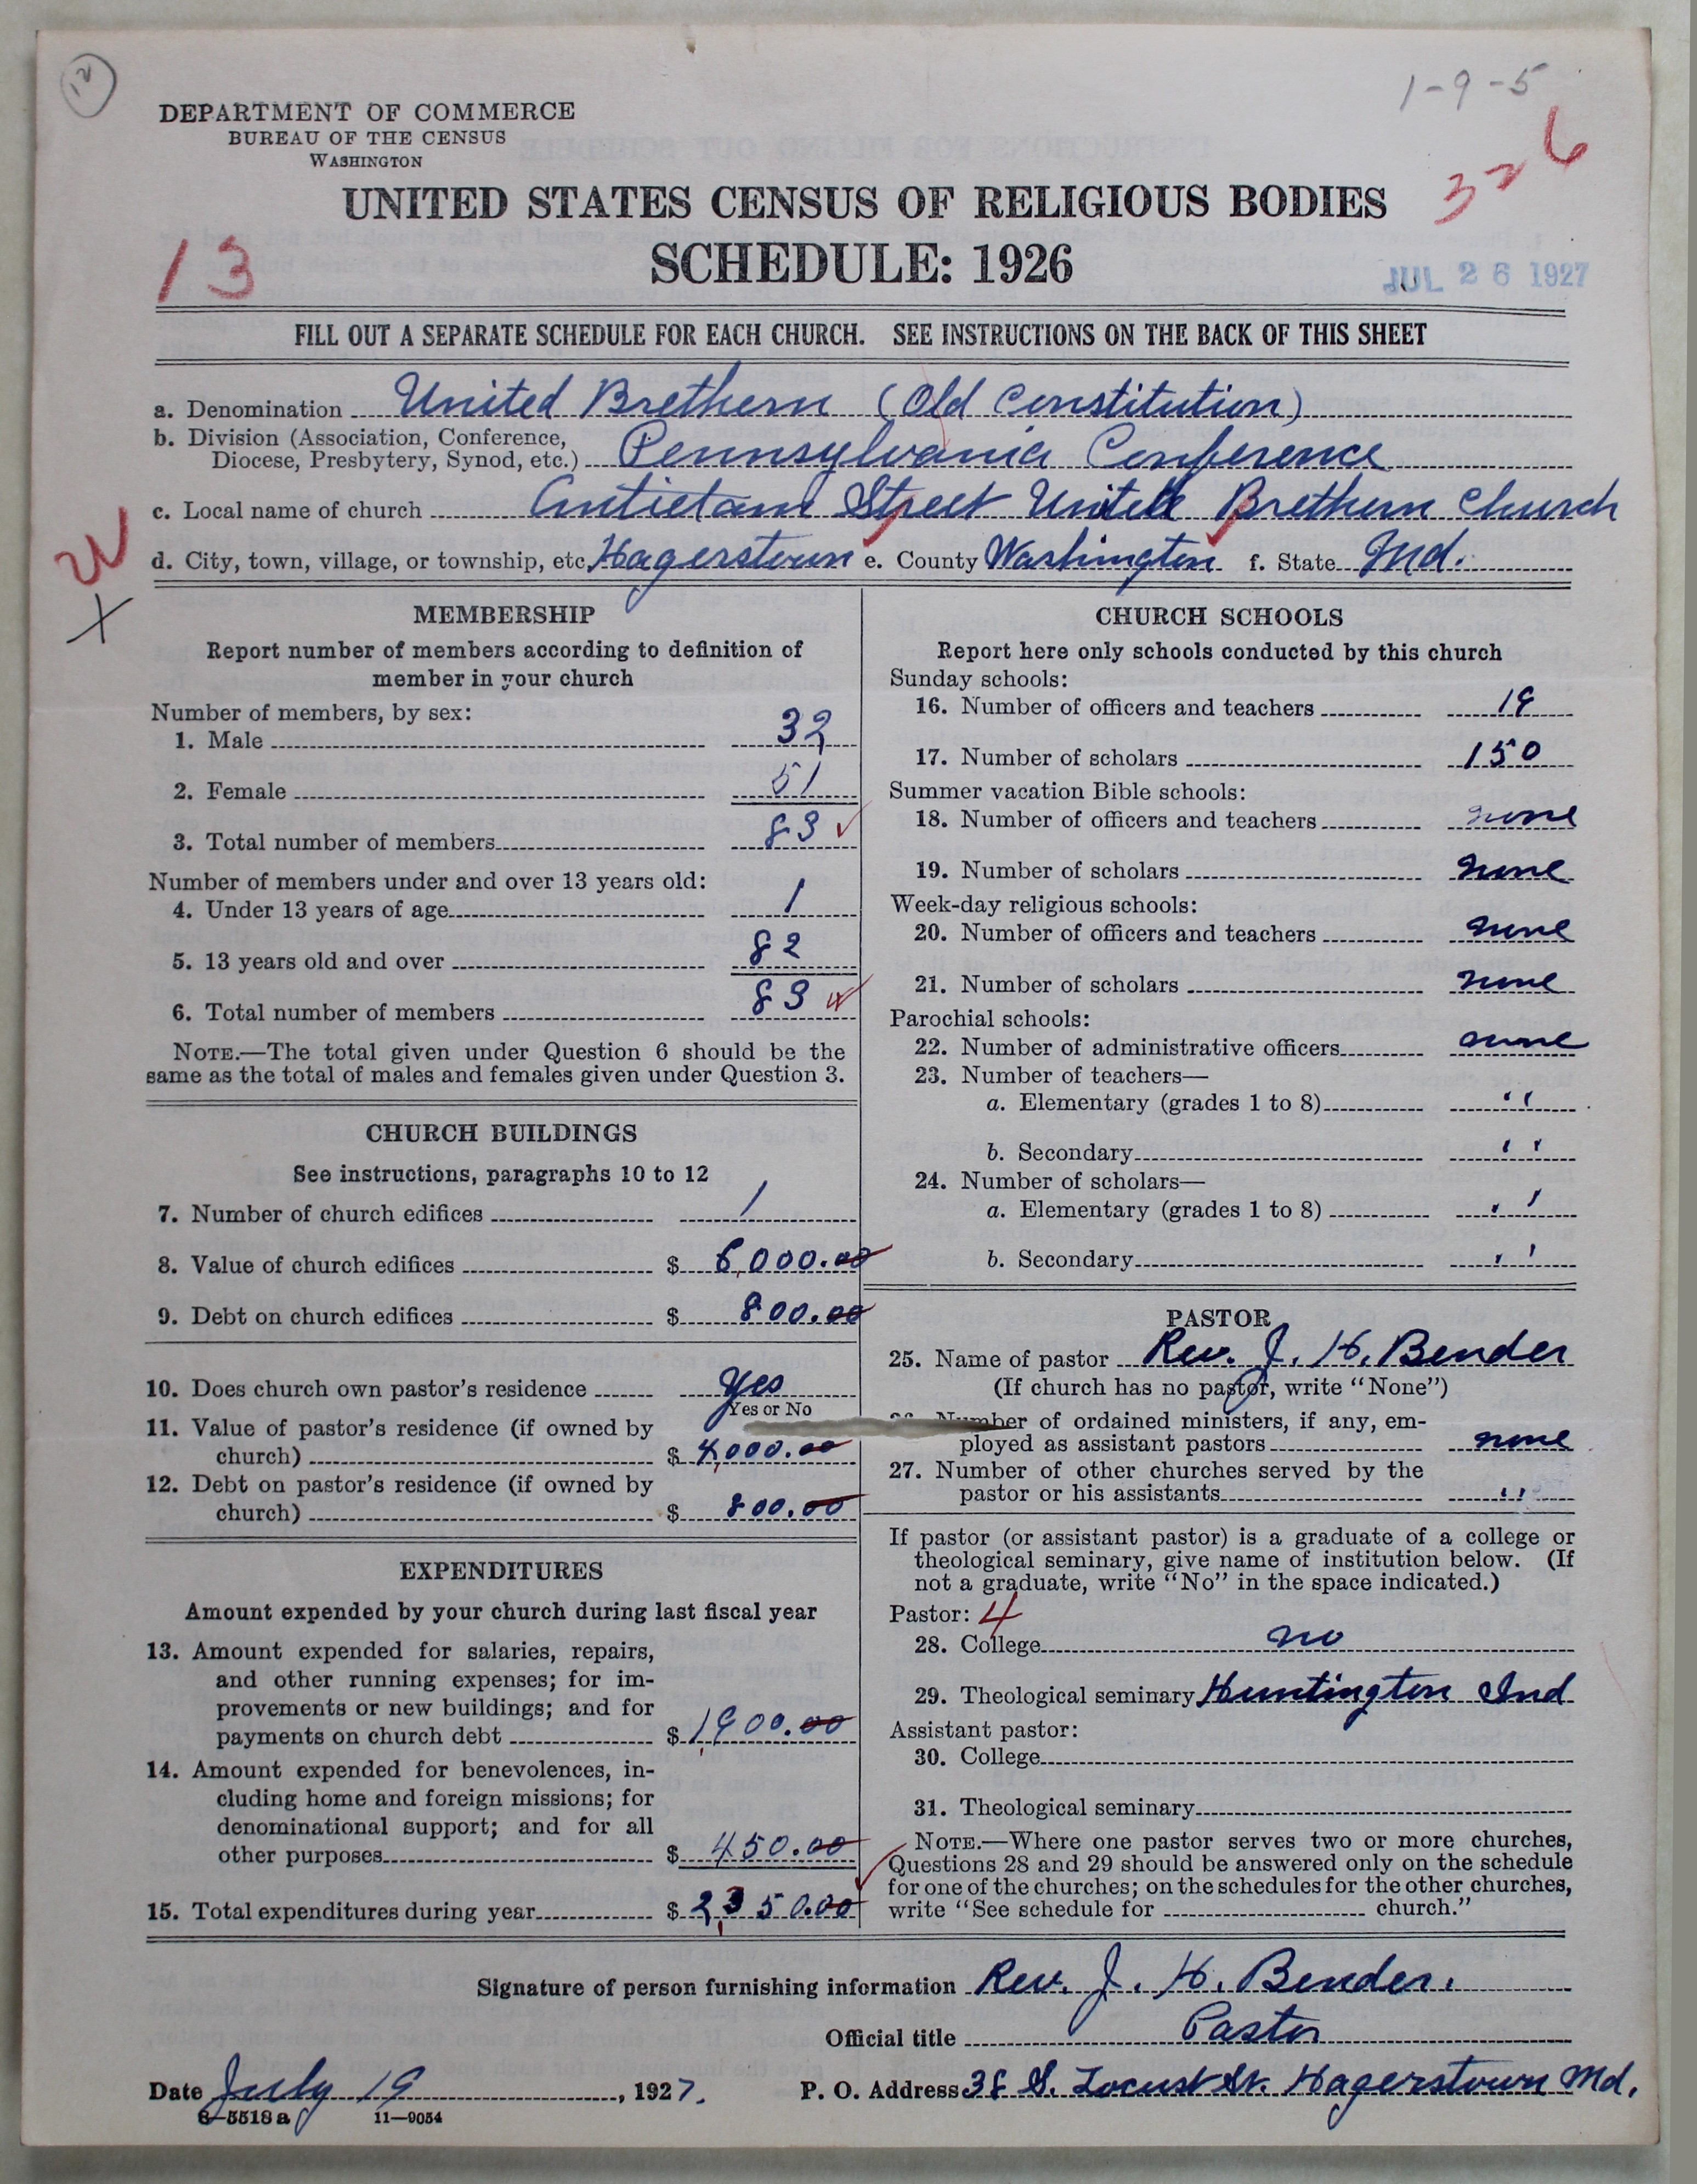 12
1-9-5
DEPARTMENT OF COMMERCE
BUREAU OF THE CENSUS
WASHINGTON
326
UNITED STATES CENSUS OF RELIGIOUS BODIES
13
SCHEDULE: 1926
JUL 26 1927
FILL OUT A SEPARATE SCHEDULE FOR EACH CHURCH. SEE INSTRUCTIONS ON THE BACK OF THIS SHEET
a. Denomination United Brethern (Old Constitution)
b. Division (Association, Conference,
Diocese, Presbytery, Synod, etc.) Pennsylvania Conference
c. Local name of church Antietam Street United Brethern Church
d. City, town, village, or township, etc. Hagerstown e. County Washington f. State Md.
X
MEMBERSHIP
Report number of members according to definition of
member in your church
Number of members, by sex:
1. Male 32
2. Female 51
3. Total number of members 83
Number of members under and over 13 years old:
4. Under 13 years of age 1
5. 13 years old and over 82
6. Total number of members 83
NOTE.—The total given under Question 6 should be the
same as the total of males and females given under Question 3.
CHURCH BUILDINGS
See instructions, paragraphs 10 to 12
7. Number of church edifices 1
8. Value of church edifices $ 6,000.00
9. Debt on church edifices $ 800.00
10. Does church own pastor's residence yes
Yes or No
11. Value of pastor's residence (if owned by
church) $ 4,000.00
12. Debt on pastor's residence (if owned by
church) $ 800.00
EXPENDITURES
Amount expended by your church during last fiscal year
13. Amount expended for salaries, repairs,
and other running expenses; for im-
provements or new buildings; and for
payments on church debt $ 1,900.00
14. Amount expended for benevolences, in-
cluding home and foreign missions; for
denominational support; and for all
other purposes $ 450.00
15. Total expenditures during year $ 2,350.00
CHURCH SCHOOLS
Report here only schools conducted by this church
Sunday schools:
16. Number of officers and teachers 19
17. Number of scholars 150
Summer vacation Bible schools:
18. Number of officers and teachers none
19. Number of scholars none
Week-day religious schools:
20. Number of officers and teachers none
21. Number of scholars none
Parochial schools:
22. Number of administrative officers none
23. Number of teachers—
a. Elementary (grades 1 to 8) "
b. Secondary "
24. Number of scholars—
a. Elementary (grades 1 to 8) "
b. Secondary "
PASTOR
25. Name of pastor Rev. J. H. Bender
(If church has no pastor, write "None")
Number of ordained ministers, if any, em-
ployed as assistant pastors none
27. Number of other churches served by the
pastor or his assistants "
If pastor (or assistant pastor) is a graduate of a college or
theological seminary, give name of institution below. (If
not a graduate, write "No" in the space indicated.)
Pastor: 4
28. College no
29. Theological seminary Huntington Ind
Assistant pastor:
30. College
31. Theological seminary
NOTE.—Where one pastor serves two or more churches,
Questions 28 and 29 should be answered only on the schedule
for one of the churches; on the schedules for the other churches,
write "See schedule for church."
Signature of person furnishing information Rev. J. H. Bender.
Official title Pastor
Date July 19, 1927. P. O. Address S. Locust St. Hagerstown Md.
8-5518a 11—9054